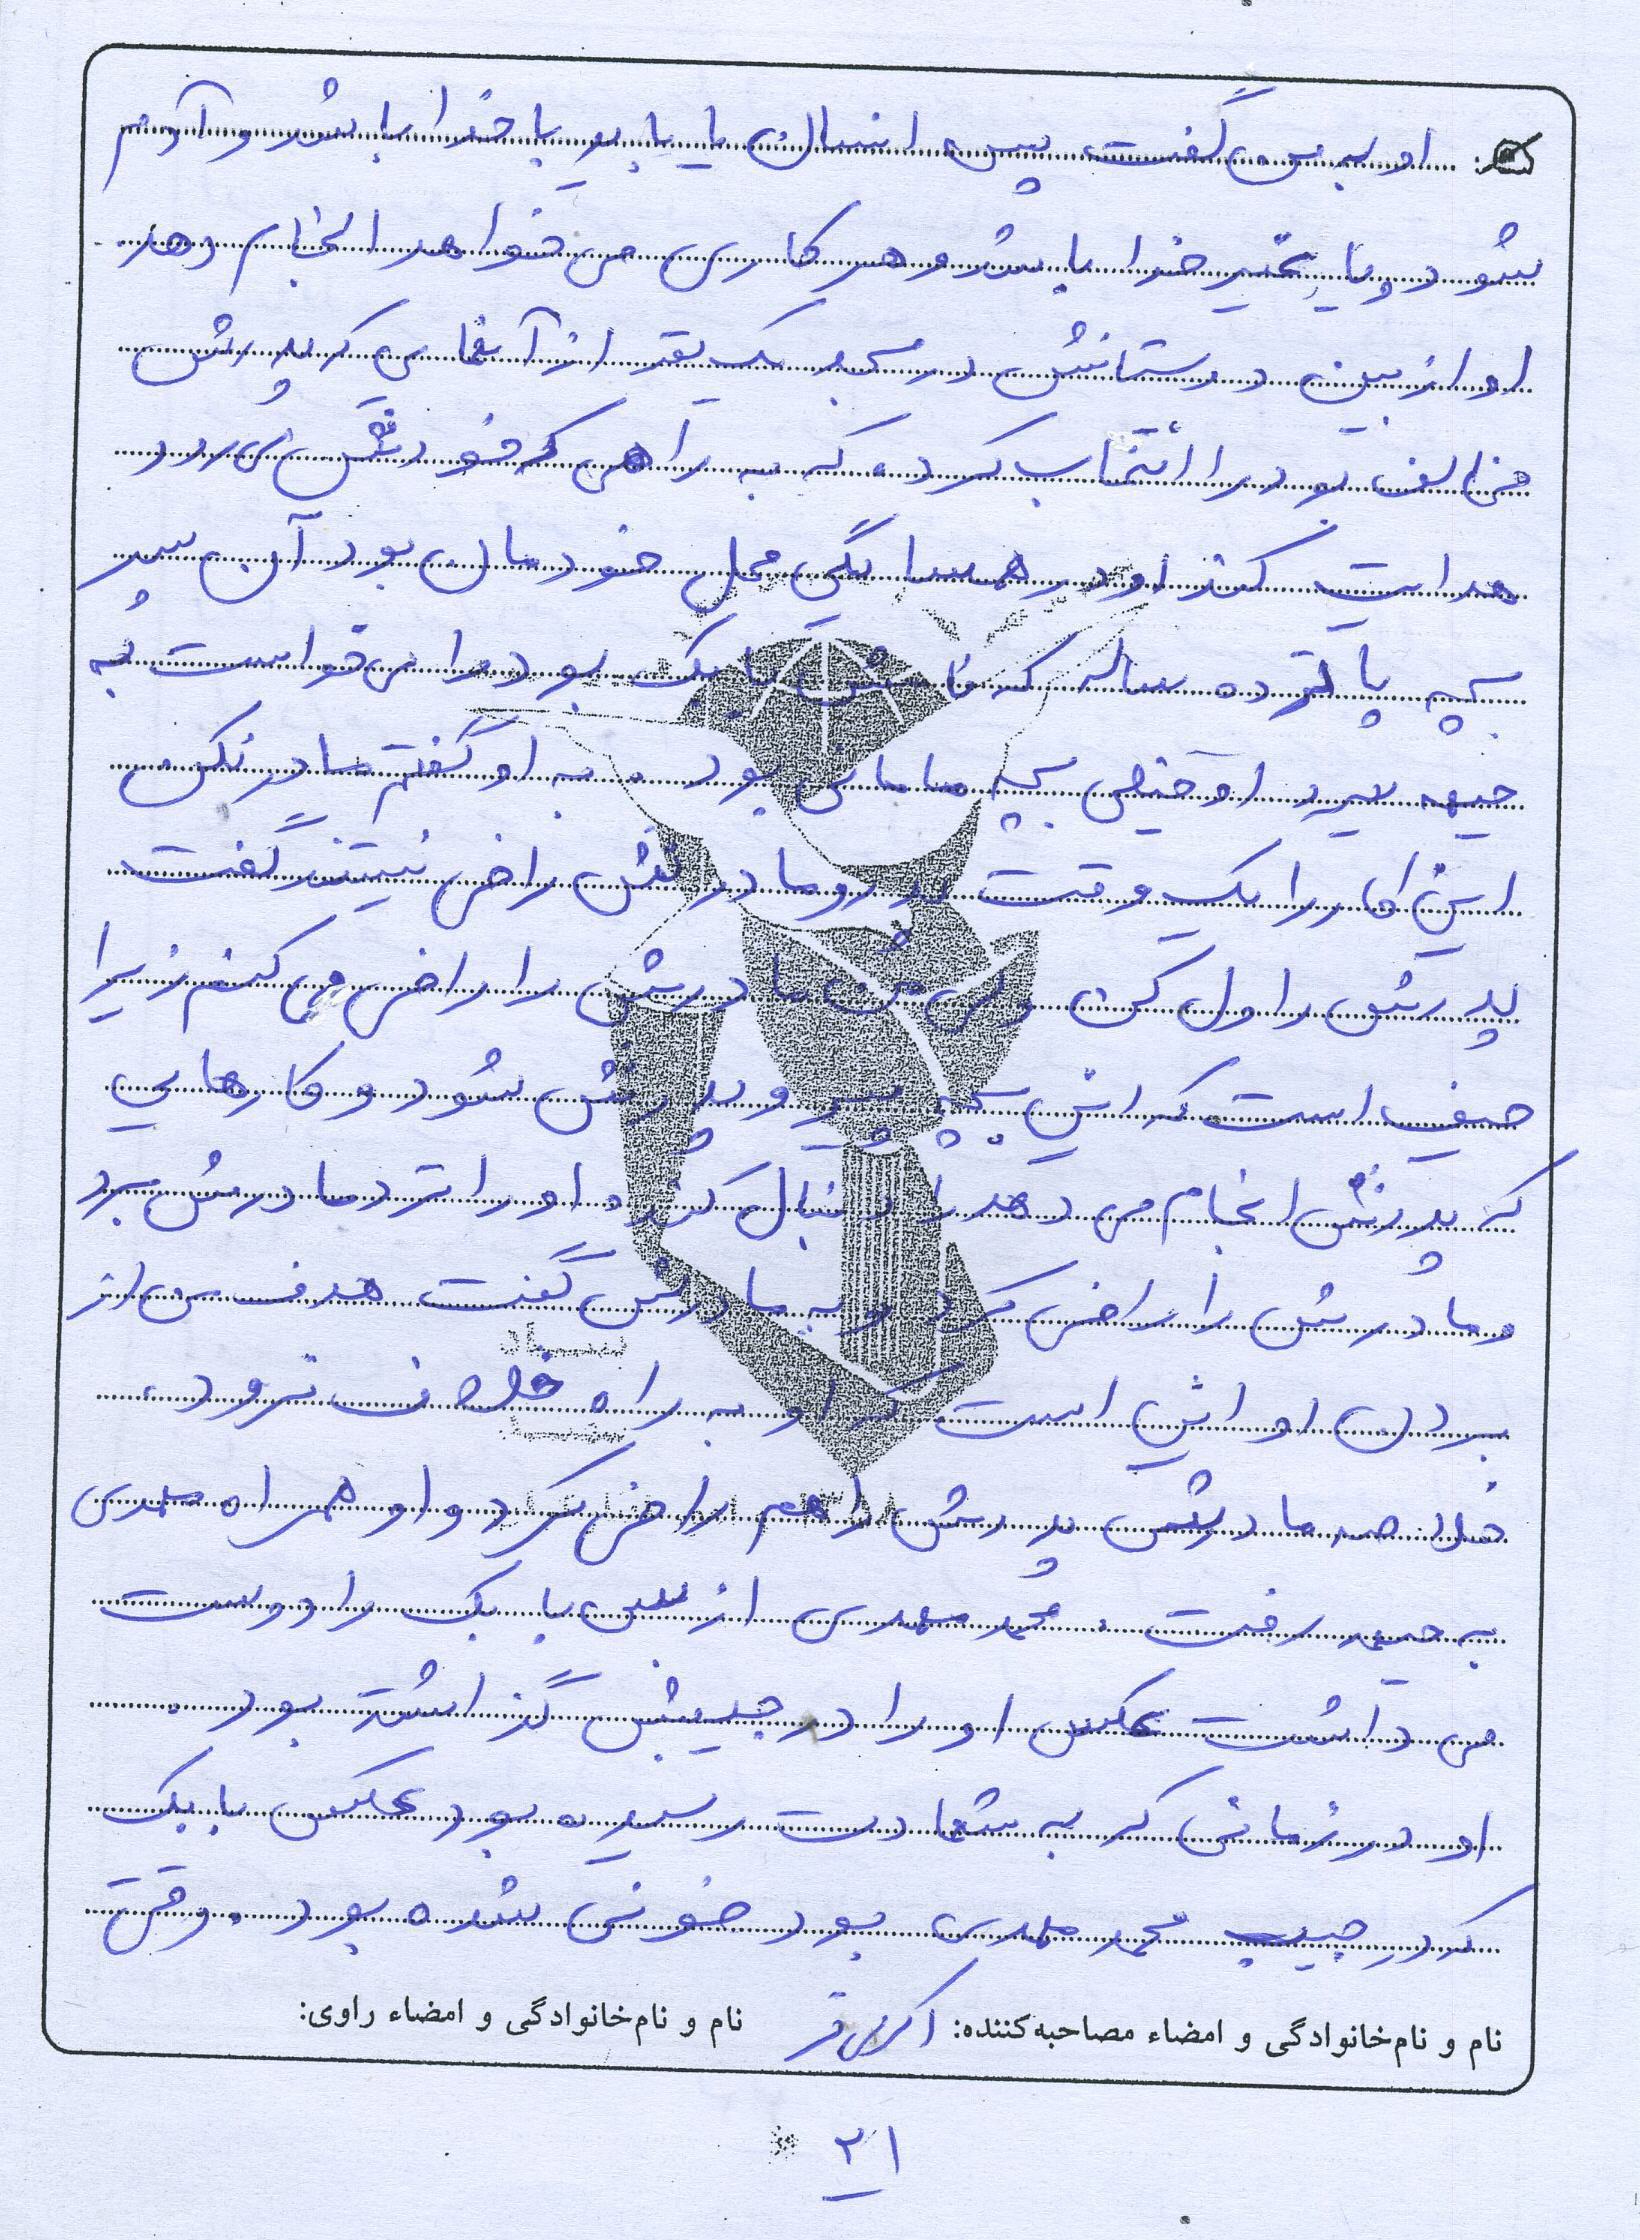 او به من گفت پس انسان یا باید با خدا باشد و آدم
شود و یا بغیر خدا باشد و هر کاری می خواهد انجام دهد
او از بین دوستانش در مسجد یک نفر از آنهایی که پدرش
مخالف بود را انتخاب کرده که به راهی که خودش می رود
هدایت کند او در همسایگی محل خودمان بود آن پسر
بچه پانزده ساله که نامش بابک بود را می خواست به
جبهه ببرد او خیلی بچه مامانی بود. به او گفتم مادر نکن
این کار را یک وقت پدر و مادرش راضی نیستند گفت
پدرش را ول کن ولی من مادرش را راضی می کنم زیرا
حیف است که این بچه پیرو پدرش شود و کارهایی
که پدرش انجام می دهد را دنبال کند و او را نزد مادرش برد
و مادرش را راضی کرد و به مادرش گفت هدف من از
بردن او این است که او به راه خلاف نرود.
خلاصه مادرش پدرش را هم راضی کرد و او همراه مهدی
به جبهه رفت. محمد مهدی از بس بابک را دوست
می داشت عکس او را در جیبش گذاشته بود.
او در زمانی که به شهادت رسیده بود عکس بابک
که در جیب محمد مهدی بود خونی شده بود. وقتی
نام و نام‌خانوادگی و امضاء مصاحبه‌کننده: نام و نام‌خانوادگی و امضاء راوی:
۲۱